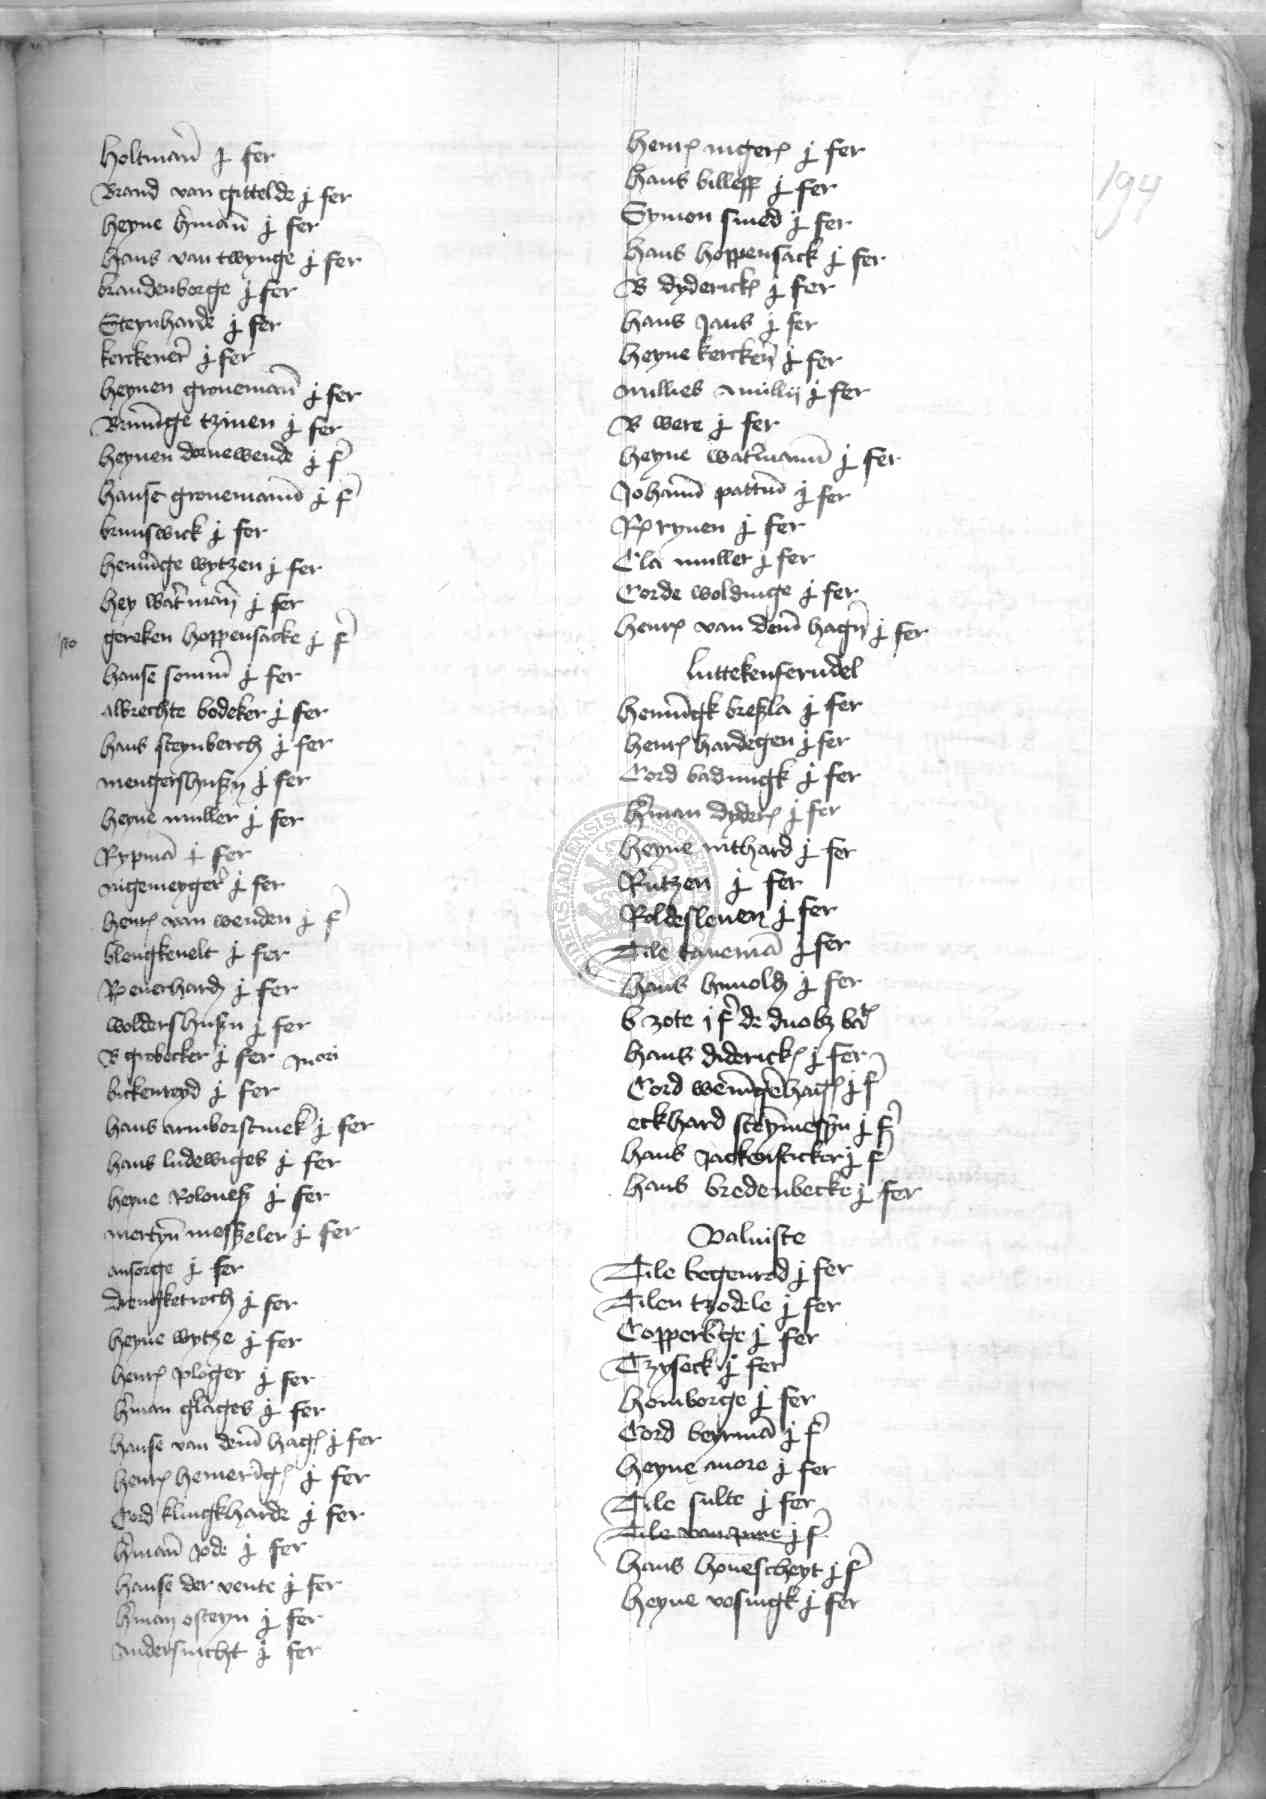 194
Holtman j fer
Brand van gittelde j fer
heyne hman j fer
hans van twynge j fer
brandenborge j fer
Steynharde j fer
kerckener j fer
heynen groneman j fer
Bernnige tzinen j fer
heynen dornewende j f
hanse gronemann j f
brunswick j fer
hennige wytzen j fer
hey waterman j fer
gereken hoppensacke j f
hanse somm j fer
albrechte bodeker j fer
hans steynberch j fer
mengershusen j fer
heyne muller j fer
Rypma j fer
nigemeyger j fer
henr van wenden j f
blengkenelt j fer
R euerhard j fer
woldershusen j fer
B grobecker j fer
bickenreyd j fer
hans armborstmek j fer
hans ludewiges j fer
heyne Roloues j fer
mertyn meszeler j fer
ansorge j fer
drengketroch j fer
heyne wytze j fer
henr ploger j fer
hman glages j fer
hanse van dem hag j fer
henr hemering j fer
Cord klingkharde j fer
hman Jode j fer
hanse der vente j fer
hman osteyn j fer
andersnicht j fer
henr niger j fer
hans billesse j fer
Symon smed j fer
hans hoppensack j fer
B dyderick j fer
hans Jans j fer
heyne kercken j fer
millies j fer
B were j fer
heyne watermann j fer
Johann j fer
R rynen j fer
Cla muller j fer
Corde woldinge j fer
henr van dem hagen j fer
luttekenferndel
henningk bresla j fer
henr hardegen j fer
Cord badungk j fer
hman dyder j fer
heyne nithard j fer
Rutzen j fer
Roldesleuen j fer
Tile tanema j fer
hans hunold j fer
b zote j f de duobz
hans diderick j fer
Cord weningehag j f
eckhard steynmessen j f
hans Jackensticker j f
hans bredenbecke j fer
Valuiste
Tile begenrod j fer
Tilen tzodele j fer
Copperberge j fer
Tzyseck j fer
homborge j fer
Cord beyrma j f
heyne more j fer
Tile sulte j fer
Tile van j f
hans houescheyt j f
heyne vosingk j fer